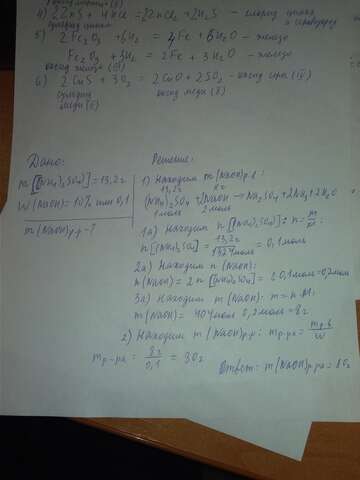 4) 2ZnS + 4HCl = 2ZnCl₂ + 2H₂S - хлорид цинка
сульфид цинка и сероводород
5) 2Fe₂O₃ + 6H₂ = 4Fe + 6H₂O - железо
Fe₂O₃ + 3H₂ = 2Fe + 3H₂O - железо
оксид железа (III)
6) 2CuS + 3O₂ = 2CuO + 2SO₂ - оксид серы (IV)
сульфид оксид меди (II)
меди (II)
Дано:
m[(NH₄)₂SO₄] = 13,2г
W(NaOH) = 10% или 0,1
m(NaOH)р-р - ?
Решение:
1) Находим m(NaOH)р.в:
13,2г xг
(NH₄)₂SO₄ + 2NaOH → Na₂SO₄ + 2NH₃ + 2H₂O
1моль 2моль
1а) Находим n[(NH₄)₂SO₄]: n = m/M
n[(NH₄)₂SO₄] = 13,2г / 132г/моль = 0,1моль
2а) Находим n(NaOH):
n(NaOH) = 2n[(NH₄)₂SO₄] = 2·0,1моль = 0,2моль
3а) Находим m(NaOH): m = n·M
m(NaOH) = 40г/моль·0,2моль = 8г
2) Находим m(NaOH)р-р: mр-ра = mр.в/W
mр-ра = 8г/0,1 = 80г
Ответ: m(NaOH)р-ра = 80г